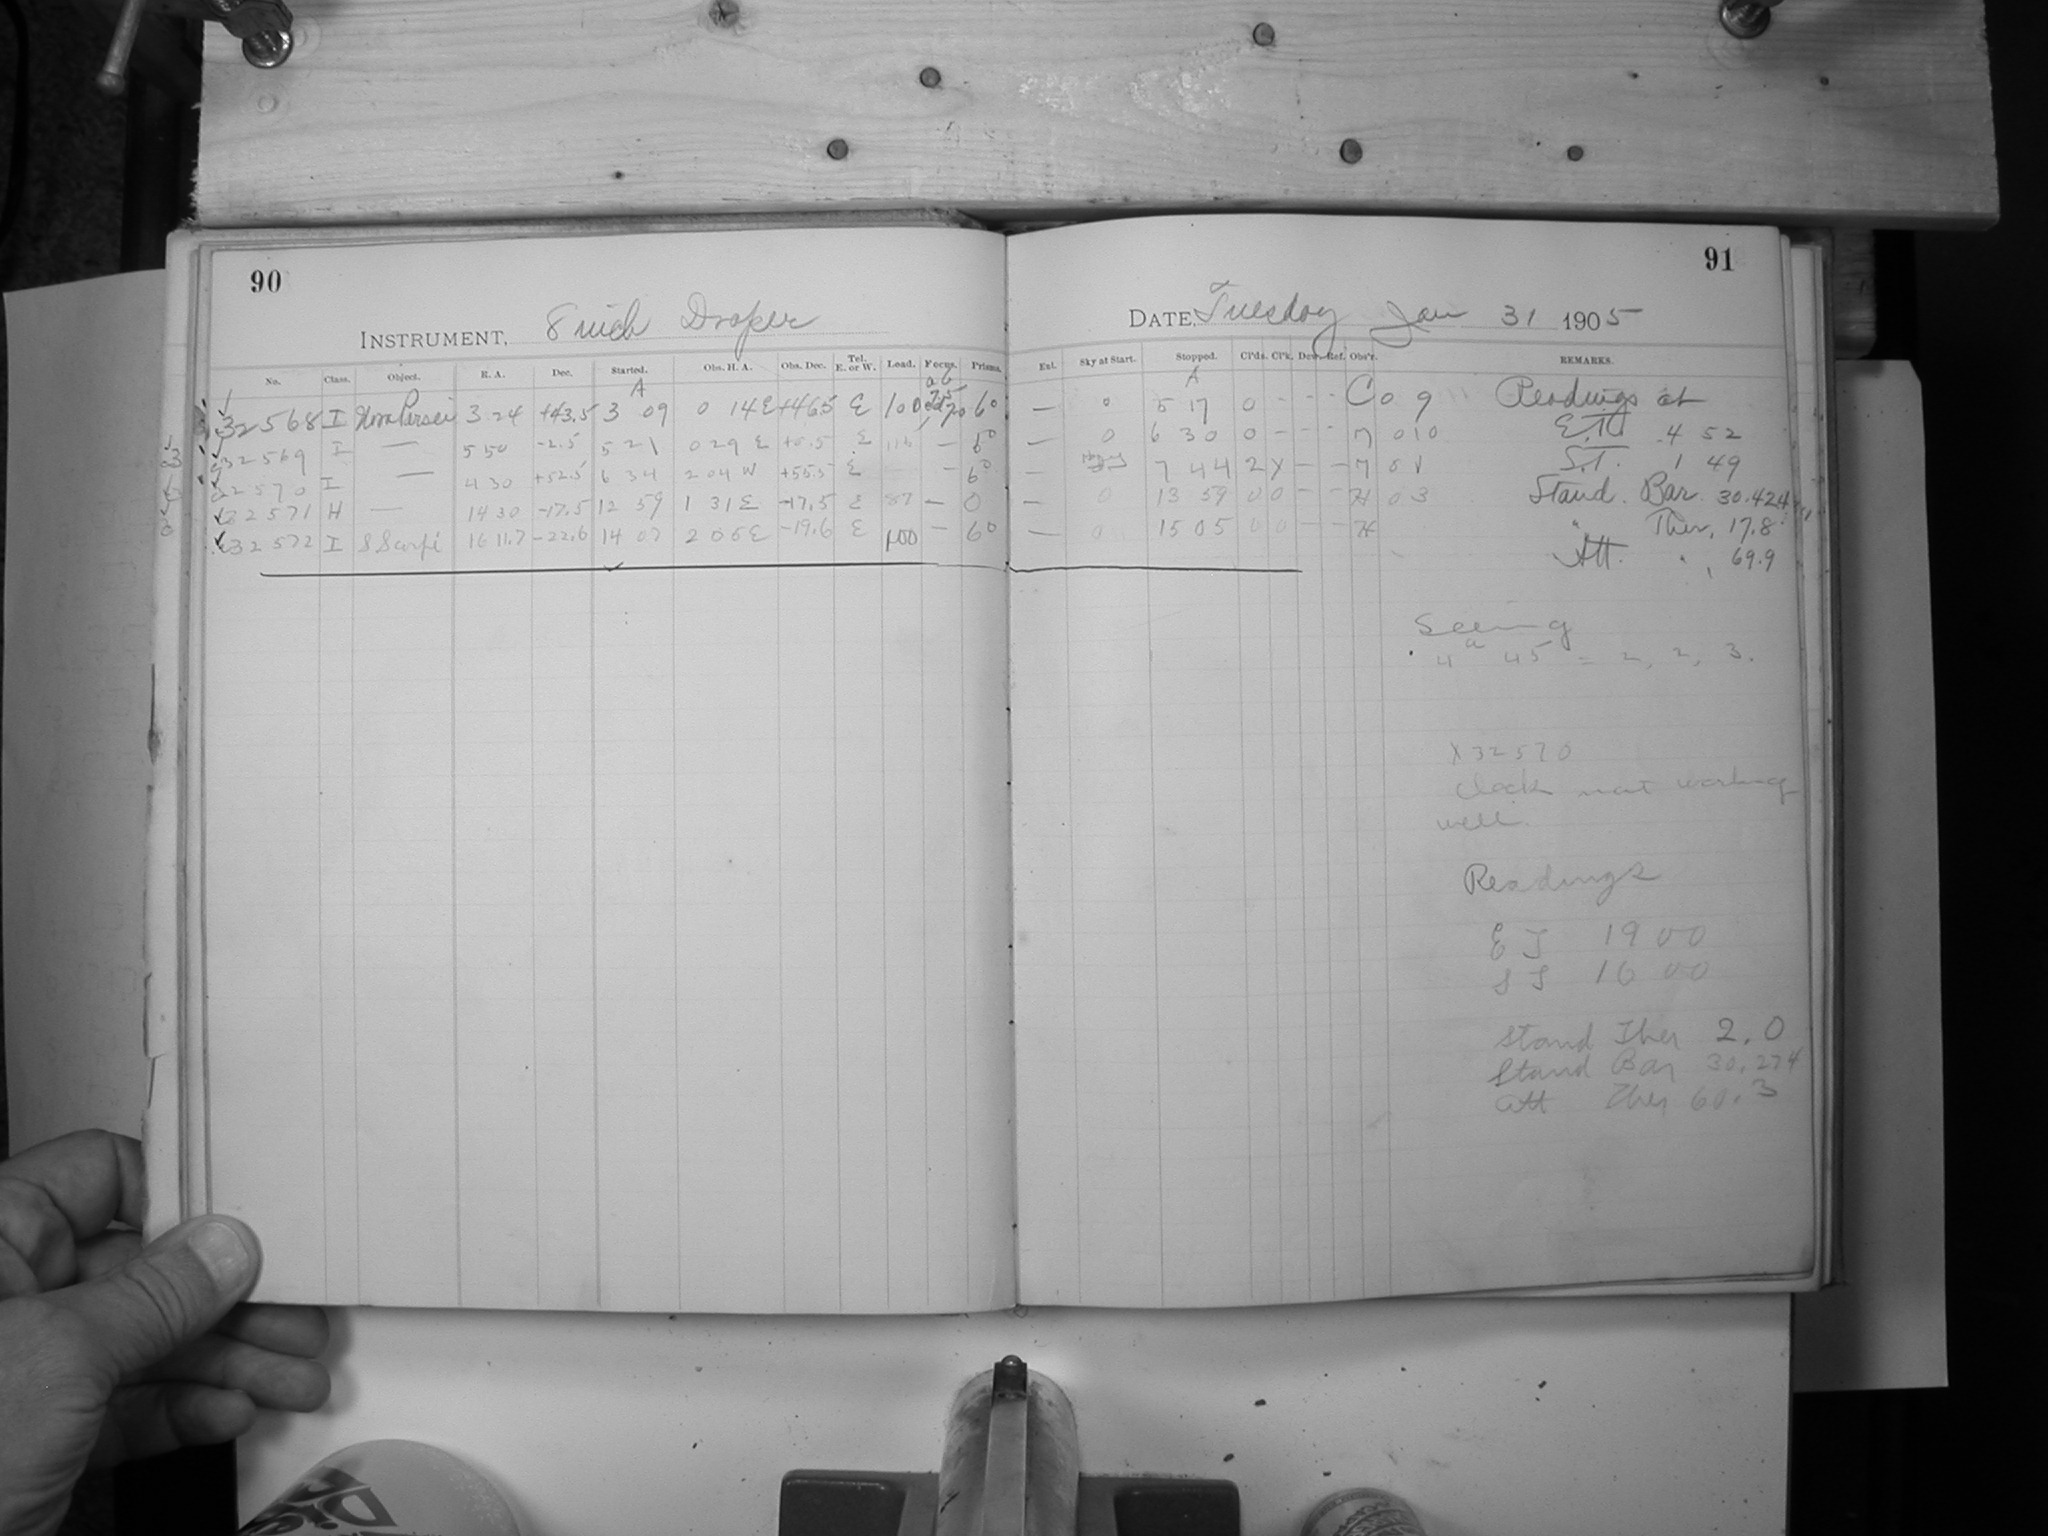 90
INSTRUMENT, 8 inch Draper
No. Class. Object. R. A. Dec. Started. Obs. H. A. Obs. Dec. Tel. E. or W. Load. Focus. Prisms.
A
32568 I Nova Persei 3 24 +43.5 3 09 0 14 E +46.5 E 100 6°
32569 I — 5 50 -2.5 5 21 0 29 E E — 6°
32570 I — 4 30 +52.5 6 34 2 04 W +55.5 E — 6°
32571 H — 14 30 -17.5 12 59 1 31 E -17.5 E 87 — 0
32572 I S Scorpi 16 11.7 -22.6 14 07 2 05 E -19.6 E 100 — 6°
91
DATE, Tuesday Jan 31 1905
Ent. Sky at Start. Stopped. Cl'ds. Cl'k. Dew. Ref. Obs'r. REMARKS.
A
— 0 5 17 0 - - - C 0 9 Readings at
— 0 6 30 0 - - - 7 010 E.T. 4 52
— 7 44 2 X - - 7 S.T. 1 49
— 0 13 59 0 0 - - H 0 3 Stand. Bar. 30.424
— 0 15 05 0 0 - - H " Ther. 17.8
Att. " 69.9
Seeing
4 a 45 = 2, 2, 3.
X 32570
Clock not working
well.
Readings
E T 19 00
S T 16 00
Stand Ther 2.0
Stand Bar 30.274
Att Ther 60.3
Die